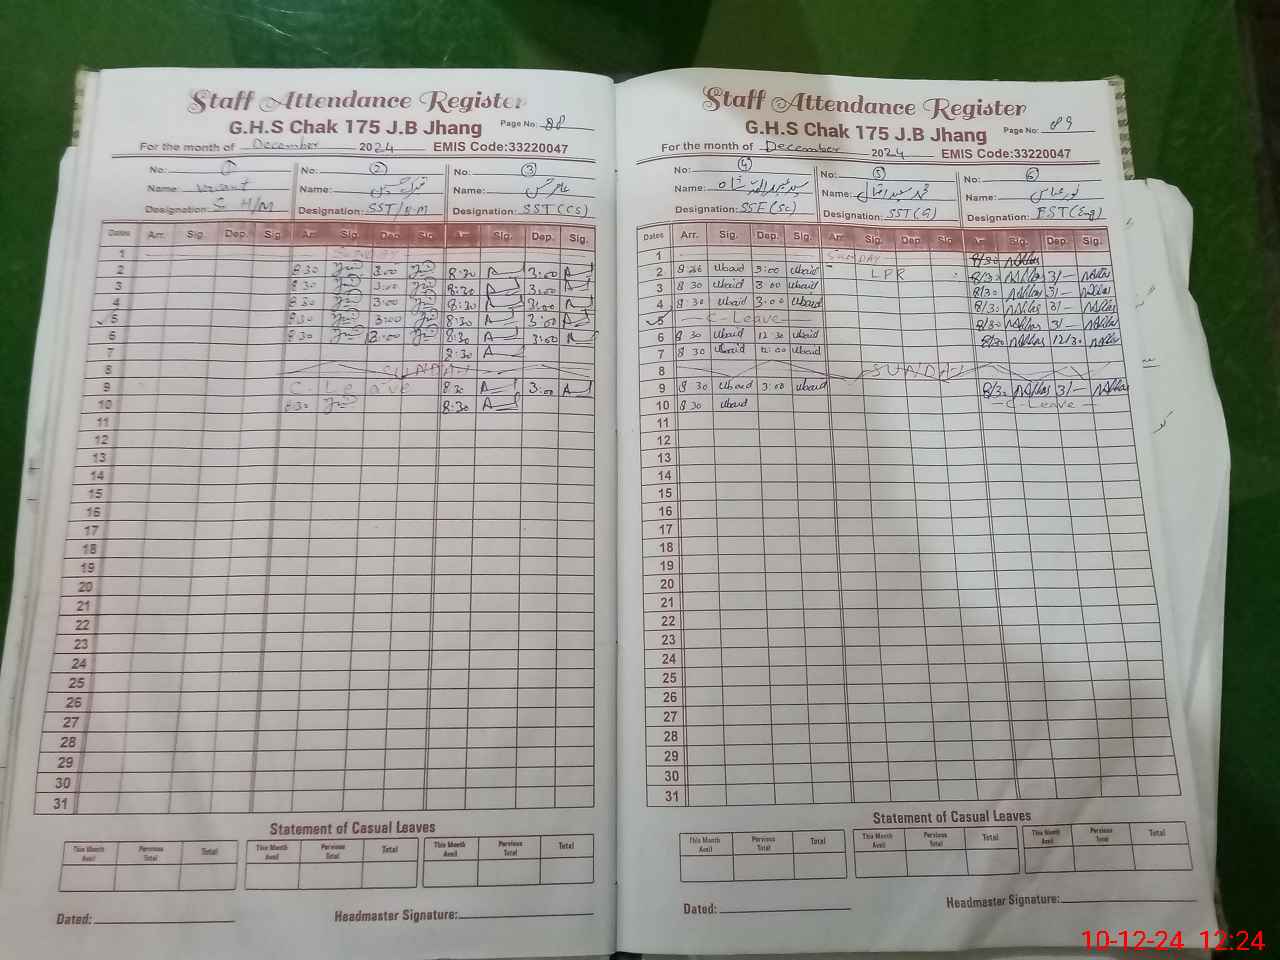 Staff Attendance Register
G.H.S Chak 175 J.B Jhang
Page No: 88
For the month of December 2024 EMIS Code:33220047
No: 1 No: 2 No: 3
Name: Vacant Name: Name: عامر حسن
Designation: S H/M Designation: SST/H.M Designation: SST(CS)
Dates Arr. Sig. Dep. Sig. Arr. Sig. Dep. Sig. Arr. Sig. Dep. Sig.
1 SUNDAY
2 8:30 3:00 8:30 3:00
3 8:30 3:00 8:30 3:00
4 8:30 3:00 8:30 3:00
5 8:30 3:00 8:30 3:00
6 8:30 3:00 8:30 3:00
7 8:30
8 SUNDAY
9 C-Leave 8:30 3:00
10 8:30 8:30
11
12
13
14
15
16
17
18
19
20
21
22
23
24
25
26
27
28
29
30
31
Statement of Casual Leaves
This Month Avail Pervious Total Total This Month Avail Pervious Total Total This Month Avail Pervious Total Total
Dated: Headmaster Signature:
Staff Attendance Register
G.H.S Chak 175 J.B Jhang
Page No: 89
For the month of December 2024 EMIS Code:33220047
No: 4 No: 5 No: 6
Name: Name: Name:
Designation: SSE(Sc) Designation: SST(G) Designation: EST(Eng)
Dates Arr. Sig. Dep. Sig. Arr. Sig. Dep. Sig. Arr. Sig. Dep. Sig.
1 SUNDAY 8/30
2 Ubaid 3:00 Ubaid LPR 8/30 3/-
3 8 30 Ubaid 3:00 Ubaid 8/30 3/-
4 8:30 Ubaid 3:00 Ubaid 8/30 3/-
5 C-Leave 8/30 3/-
6 8 30 Ubaid 12 30 Ubaid 8/30 12/30
7 8 30 Ubaid 12:00 Ubaid
8 SUNDAY
9 8 30 Ubaid 3:00 Ubaid 8/30 3/-
10 8 30 Ubaid C-Leave
11
12
13
14
15
16
17
18
19
20
21
22
23
24
25
26
27
28
29
30
31
Statement of Casual Leaves
This Month Avail Pervious Total Total This Month Avail Pervious Total Total This Month Avail Pervious Total Total
Dated: Headmaster Signature:
10-12-24 12:24